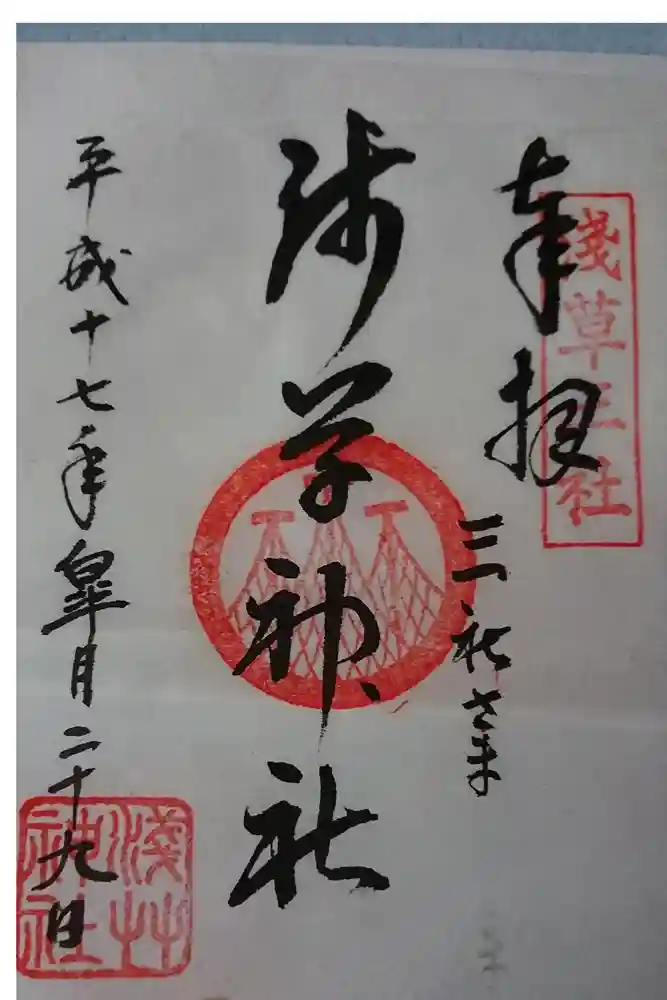 奉拝
淺草三社
三社さま
浅草神社
平成十七年皐月二十九日
淺艸
神社